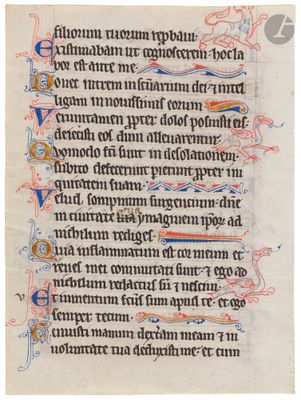 filiorum tuorum reprbavi
Existimabam ut cognoscerem hoc la
bor est ante me
Donec intrem in scuarium dei et intel
ligam in novissimis eorum
Verumtamen propter dolos posuisti eis
deiecisti eos dum allevarentur
Quomodo facti sunt in desolationem
subito defecerunt perierunt propter ini
quitatem suam
Velud sompnium surgentium domine
in civitate tua ymaginem ipsorum ad
nichilum rediges
Quia inflammatum est cor meum et
renes mei commutati sunt et ego ad
nichilum redactus sum et nescivi
Et iumentum factus sum apud te et ego
semper tecum
Tenuisti manum dexteram meam et in
voluntate tua deduxisti me et cum